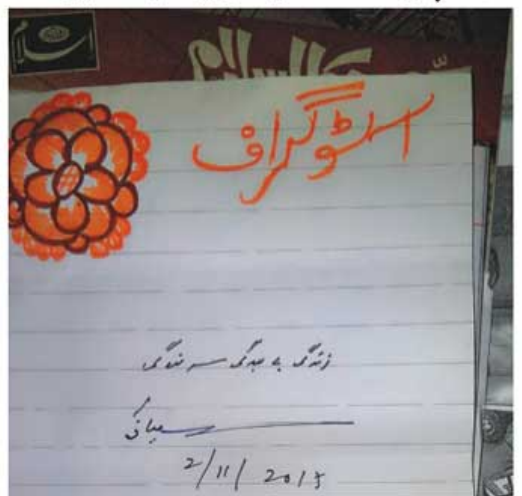 اسلام
آٹوگراف
زندگی بے بندگی شرمندگی
2/11/2015